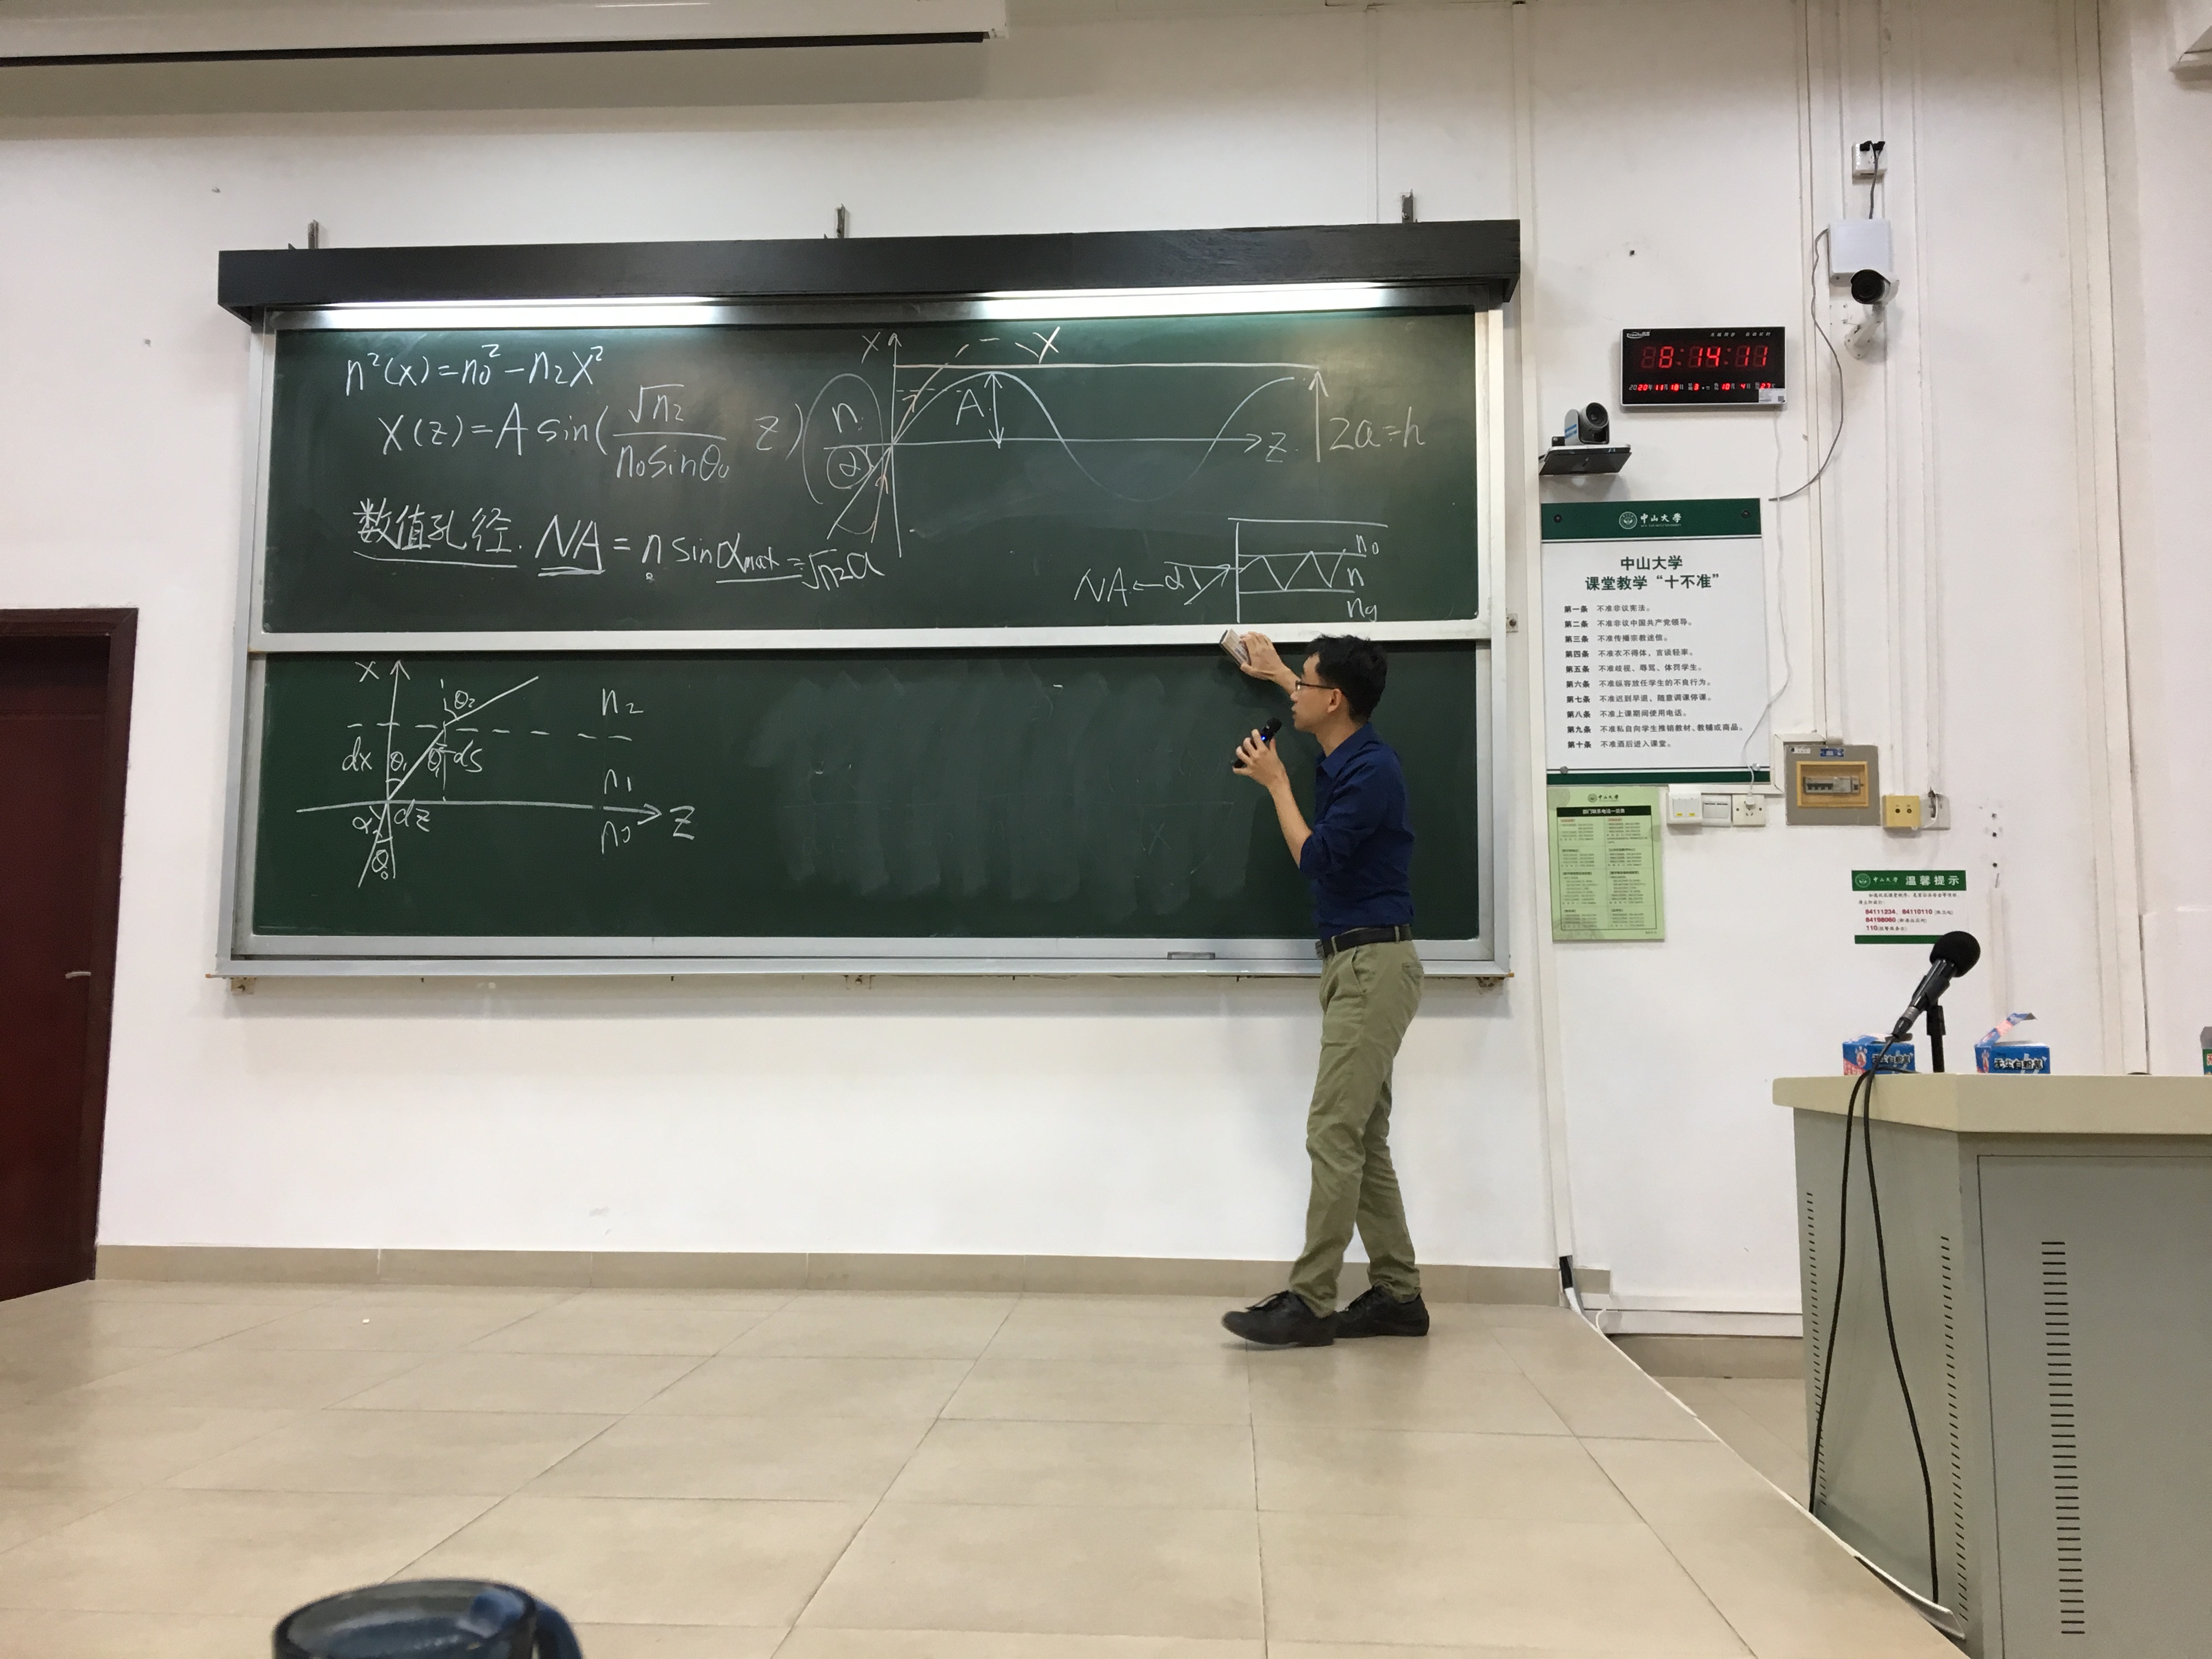 n²(x)=n₀²-n₂x²
X(z)=A sin(√n₂/n₀sinθ₀ z)
数值孔径. NA = n sinαmax=√n₂a
X
n
α
A
X
Z
2a=h
NA←α
n₀
n
ng
X
θ₂
n₂
dx
θ₁
θ₁
ds
n₁
α
dz
n₀
Z
θ₀
8:14:11
中山大學
中山大学
课堂教学“十不准”
第一条 不准非议宪法。
第二条 不准非议中国共产党领导。
第三条 不准传播宗教迷信。
第四条 不准衣不得体，言谈轻率。
第五条 不准歧视、辱骂、体罚学生。
第六条 不准纵容放任学生的不良行为。
第七条 不准迟到早退，随意调课停课。
第八条 不准上课期间使用电话。
第九条 不准私自向学生推销教材、教辅或商品。
第十条 不准酒后进入课堂。
中山大學
部门联系电话一览表
中山大學 温馨提示
84111234、84110110
84198060
110
无尘白粉笔
无尘白粉笔